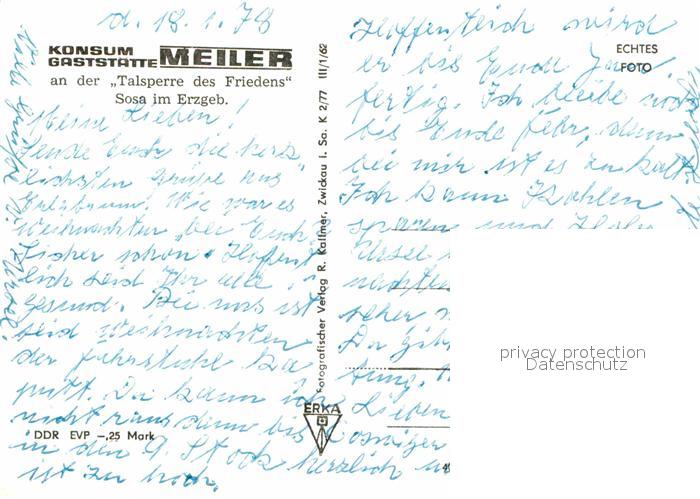 d. 18.1.78
KONSUM
GASTSTÄTTE MEILER
an der „Talsperre des Friedens"
Sosa im Erzgeb.
Meine Lieben!
sende Euch die herz-
lichsten Grüße aus
Wie war es
Weihnachten bei Euch.
Sicher schön. Hoffent-
lich seid Ihr alle
gesund. Bei uns ist
seid Weihnachten
der Fahrstuhl ka-
putt. Da kann ich
nicht raus denn bis
in den 9. Stock
ist zu hoch.
DDR EVP –,25 Mark
Fotografischer Verlag R. Kallmer, Zwickau i. Sa. K 2/77 III/1/62
ERKA
ECHTES
FOTO
Hoffentlich wird
er bis Ende Jan.
fertig. Ich bleibe noch
bis Ende Febr. denn
bei mir ist es zu kalt.
Ich kann Kohlen
sparen und Holz
Lieben
herzlich
privacy protection
Datenschutz